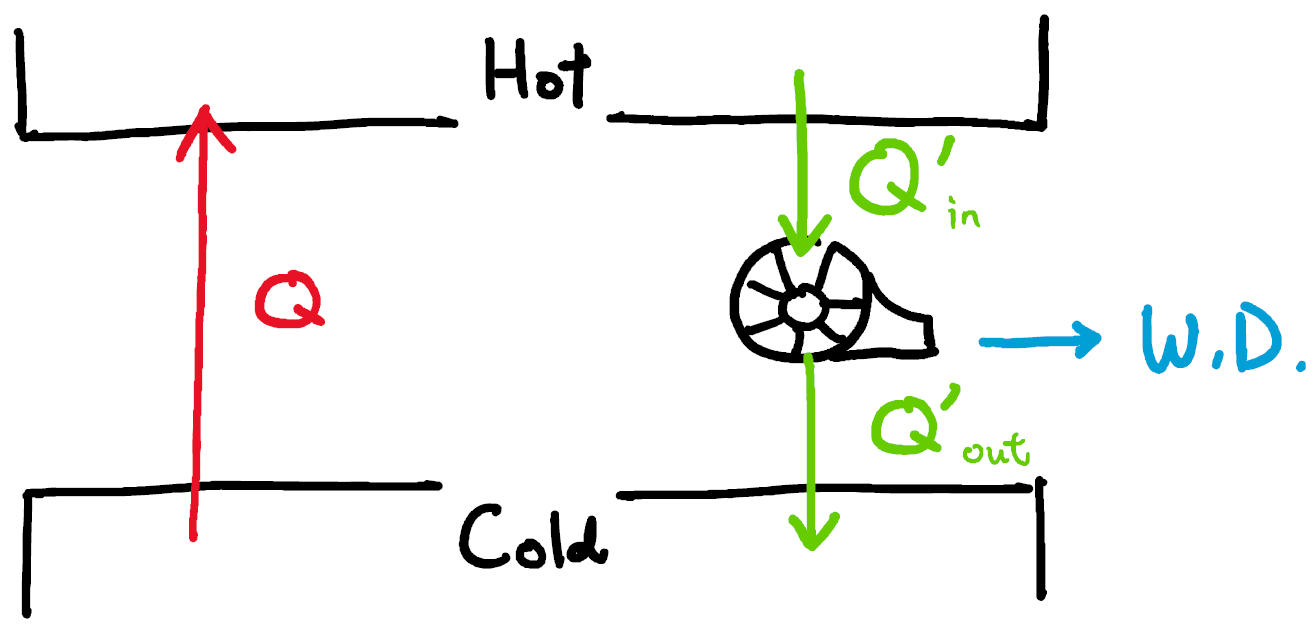 Hot
Q'in
Q
W.D.
Q'out
Cold